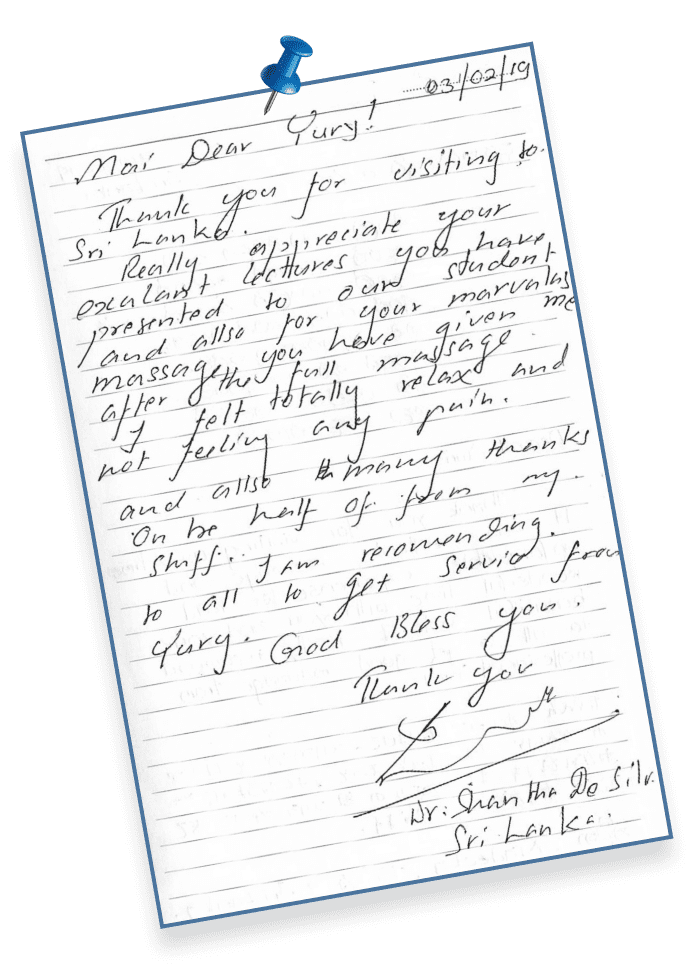 03/02/19
Mai Dear Yury!
Thank you for visiting to
Sri Lanka.
Really appreciate your
exalant lecttures you have
presented to our student
and allso for your marvalas
massage you have given me
after the full massage.
I felt totally relax and
not feeling any pain.
and allso many thanks
On be half of from my
Stuff.. I am recomending.
to all to get Service from
Yury. God Bless you.
Thank you
Dr. Shantha De Silv.
Sri Lanka.